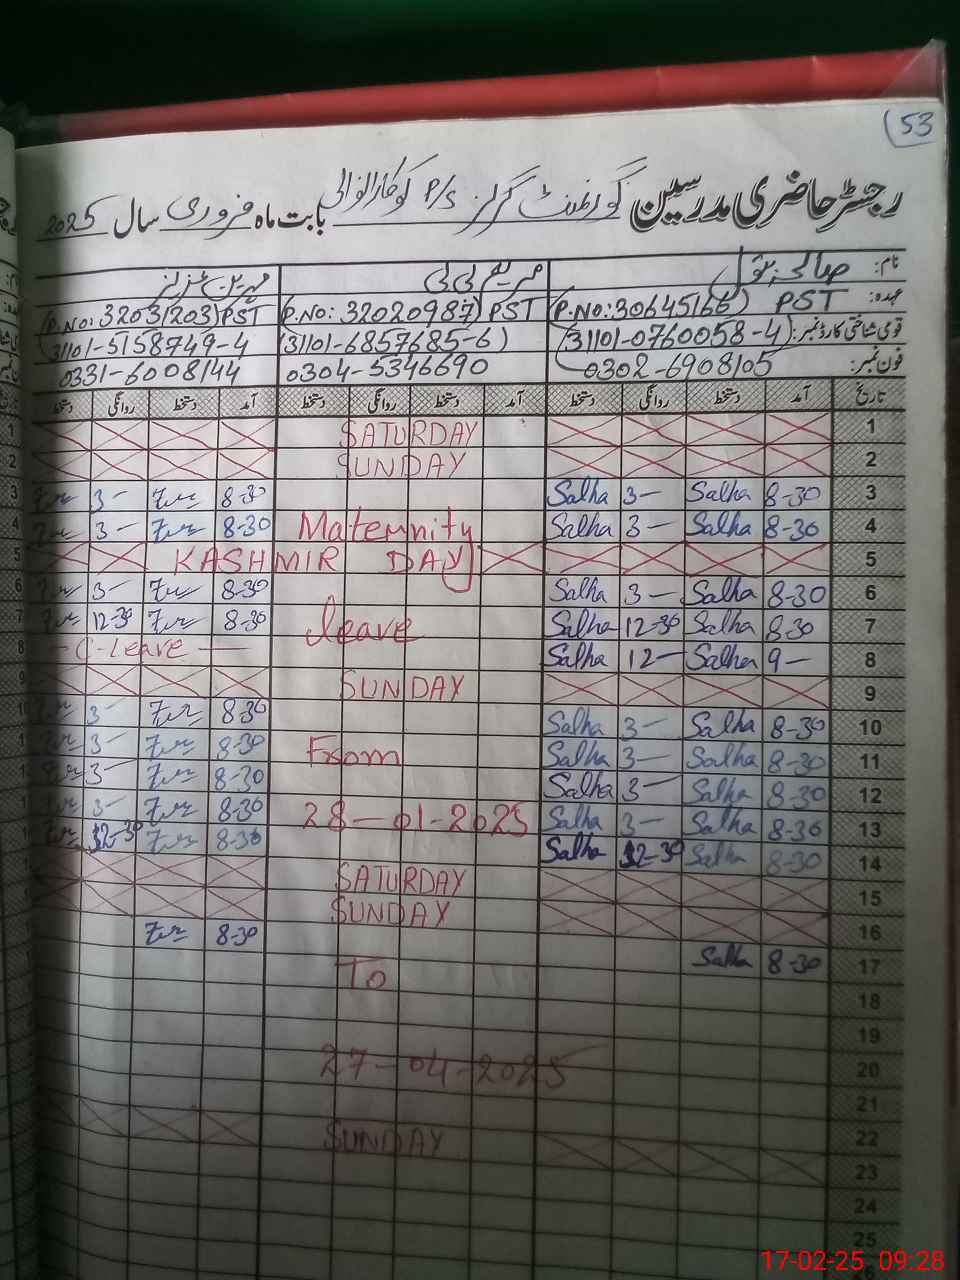 53
رجسٹر حاضری مدرسین گورنمنٹ گرلز P/S بابت ماہ فروری سال 2025
نام: صالحہ بتول مریم بی بی
عہدہ: (P.No:30645166) PST (P.No:32020987) PST (P.No:32031203) PST
قومی شناختی کارڈ نمبر: (31101-0760058-4) (31101-6857685-6) (31101-5158749-4
فون نمبر: 0302-6908105 0304-5346690 0331-6008144
تاریخ آمد دستخط روانگی دستخط آمد دستخط روانگی دستخط آمد دستخط روانگی دستخط
SATURDAY 1
SUNDAY 2
3- 8-30 Salha 3- Salha 8-30 3
3- 8-30 Maternity Salha 3- Salha 8-30 4
KASHMIR DAY 5
3- 8-30 Salha 3- Salha 8-30 6
12-30 8-30 leave Salha 12-30 Salha 8-30 7
C-Leave Salha 12- Salha 9- 8
SUNDAY 9
3- 8-30 Salha 3- Salha 8-30 10
3- 8-30 From Salha 3- Salha 8-30 11
3- 8-30 Salha 3- Salha 8-30 12
3- 8-30 28-01-2025 Salha 3- Salha 8-30 13
12-30 8-30 Salha 12-30 Salha 8-30 14
SATURDAY 15
SUNDAY 16
8-30 To Salha 8-30 17
18
19
27-04-2025 20
21
SUNDAY 22
23
24
25
17-02-25 09:28